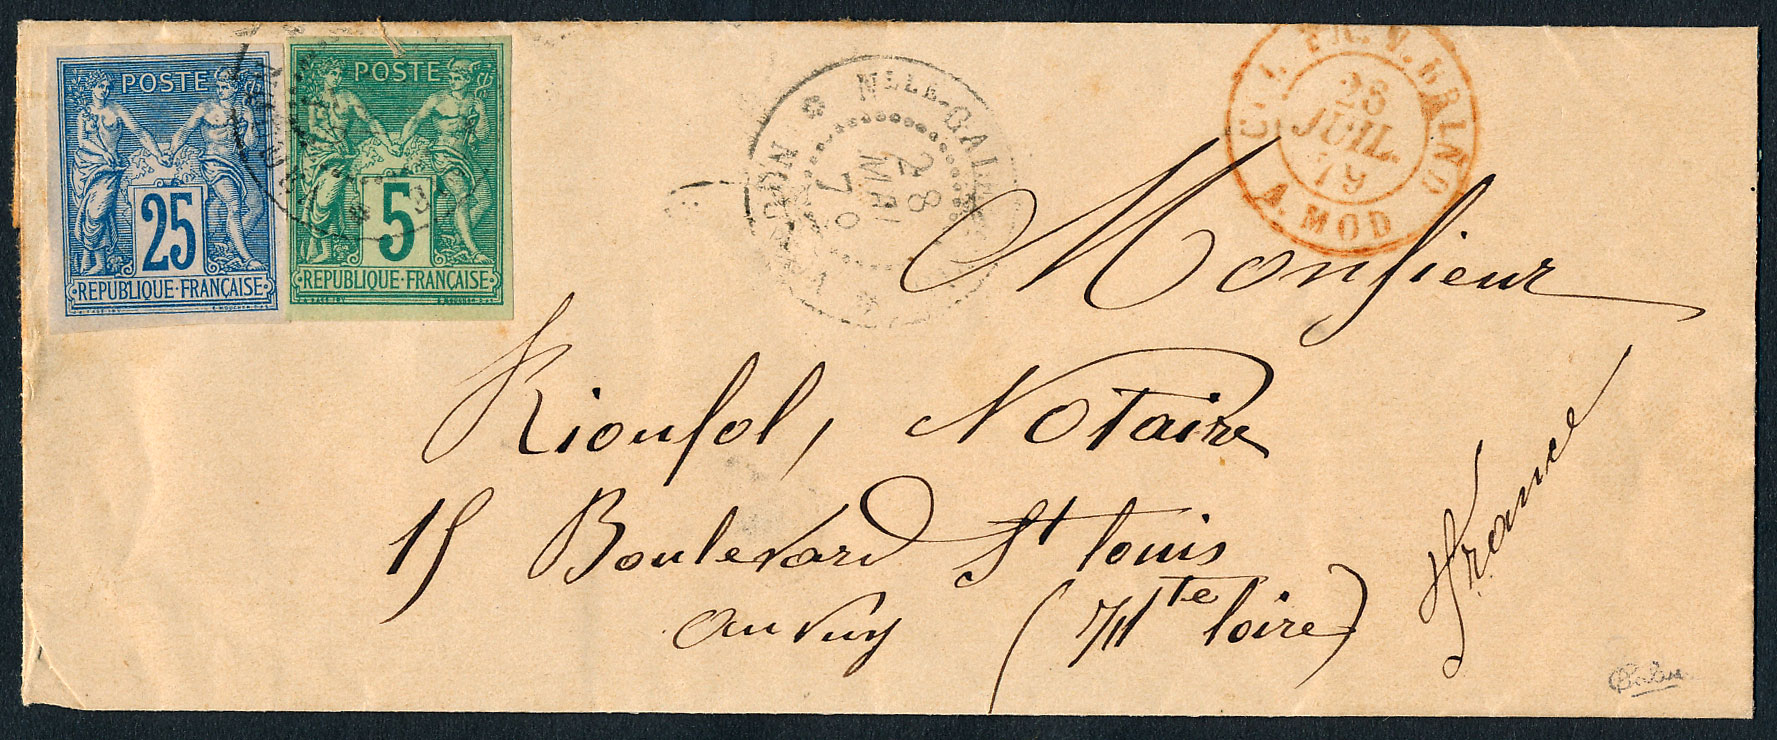 POSTE
25
REPUBLIQUE FRANÇAISE
POSTE
5
REPUBLIQUE FRANÇAISE
NLLE-CAL
28
MAI
79
28
JUIL.
79
A. MOD
Monsieur
Rioufol, Notaire
15 Boulevard St louis
au Puy (Hte loire)
France